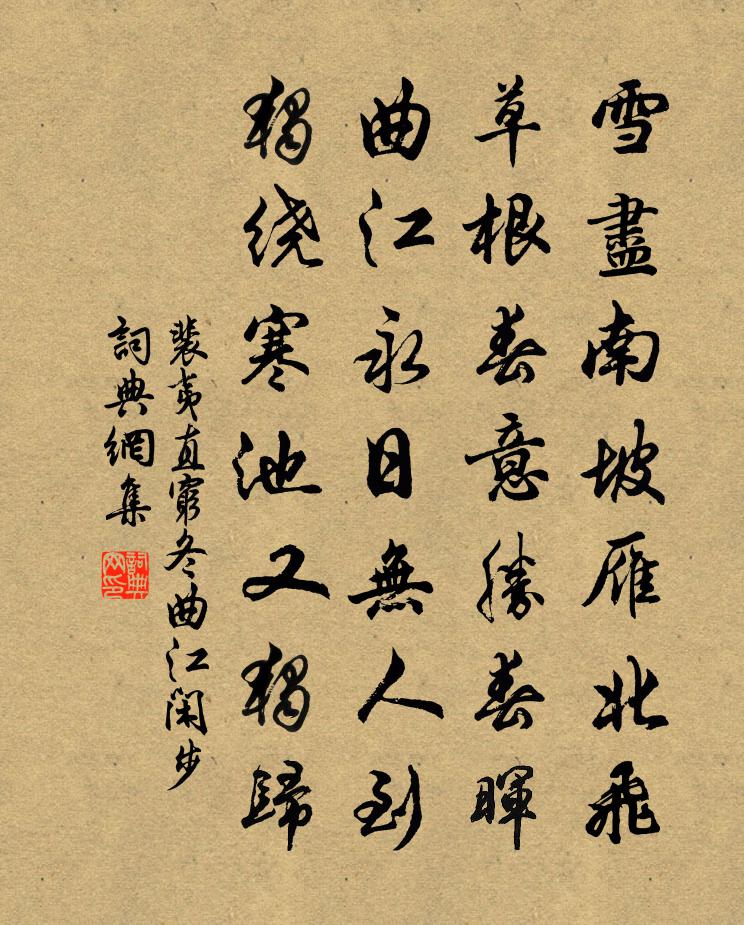 雪盡南坡雁北飛
草根春意勝春暉
曲江永日無人到
獨绕寒池又獨歸
裴夷直窮冬曲江閑步
詞典網集
詞典網印